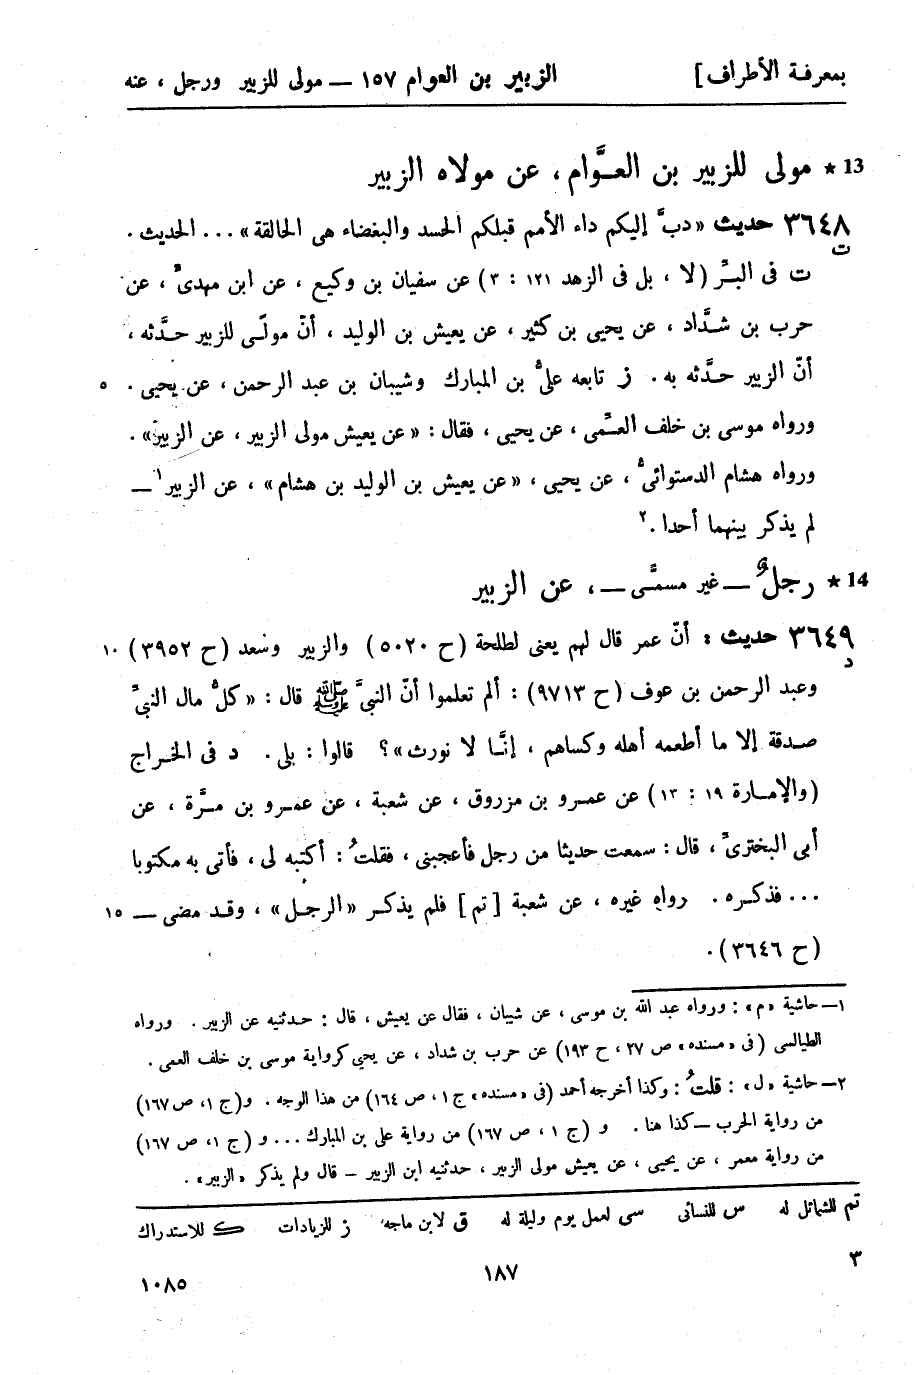 بمعرفة الأطراف] الزبير بن العوام ١٥٧ — مولى للزبير ورجل ، عنه
13 ★ مولى للزبير بن العـوَّام ، عن مولاه الزبير
٣٦٤٨ حديث «دبَّ إليكم داء الأمم قبلكم الحسد والبغضاء هى الحالقة» ... الحديث .
ت
ت فى البرّ (لا ، بل فى الزهد ١٢١ : ٣) عن سفيان بن وكيع ، عن ابن مهدىّ ، عن
حرب بن شـدَّاد ، عن يحيى بن كثير ، عن يعيش بن الوليد ، أنّ مولًى للزبير حـدّثه ،
أنّ الزبير حـدَّثه به . ز تابعه علىُّ بن المبارك وشيبان بن عبد الرحمن ، عن يحيى . ٥
ورواه موسى بن خلف العـمِّى ، عن يحيى ، فقال : «عن يعيش مولى الزبير ، عن الزبير» .
ورواه هشام الدستوائىُّ ، عن يحيى ، «عن يعيش بن الوليد بن هشام» ، عن الزبير١ —
لم يذكر بينهما أحدا .٢
14 ★ رجلٌ — غير مسمًّى — ، عن الزبير
٣٦٤٩ حديث : أنّ عمر قال لهم يعنى لطلحة (ح ٥٠٢٠) والزبير وسعد (ح ٣٩٥٢) ١٠
د
وعبد الرحمن بن عوف (ح ٩٧١٣) : ألم تعلموا أنّ النبيَّ ﷺ قال : «كلُّ مال النبيِّ
صـدقة إلا ما أطعمه أهله وكساهم ، إنَّـا لا نورث»؟ قالوا : بلى . د فى الخـراج
(والإمـارة ١٩ : ١٣) عن عمـرو بن مرزوق ، عن شعبة ، عن عمـرو بن مـرَّة ، عن
أبى البخترىّ ، قال : سمعت حديثا من رجل فأعجبنى ، فقلتُ : أكتبه لى ، فأتى به مكتوبا
... فذكـره . رواه غيره ، عن شعبة [تم] فلم يذكـر «الرجـل» ، وقـد مضى — ١٥
(ح ٣٦٤٦) .
١— حاشية «م» : ورواه عبد الله بن موسى ، عن شيبان ، فقال عن يعيش ، قال : حـدثنيه عن الزبير . ورواه
الطيالسى (فى «مسنده» ص ٢٧ ، ح ١٩٣) عن حرب بن شداد ، عن يحيى كرواية موسى بن خلف العمى .
٢— حاشية «ل» : قلتُ : وكذا أخرجه أحمد (فى «مسنده» ج ١ ، ص ١٦٤) من هذا الوجه . و(ج ١، ص ١٦٧)
من رواية الحرب — كذا هنا . و (ج ١ ، ص ١٦٧) من رواية على بن المبارك ... و (ج ١، ص ١٦٧)
من رواية معمر ، عن يحيى ، عن يعيش مولى الزبير ، حدثنيه ابن الزبير — قال ولم يذكر «الزبير» .
تم للشمائل له س للنسائى سى لعمل يوم وليلة له ق لابن ماجه ز للزيادات ك للاستدراك
٣ ١٨٧ ١٠٨٥